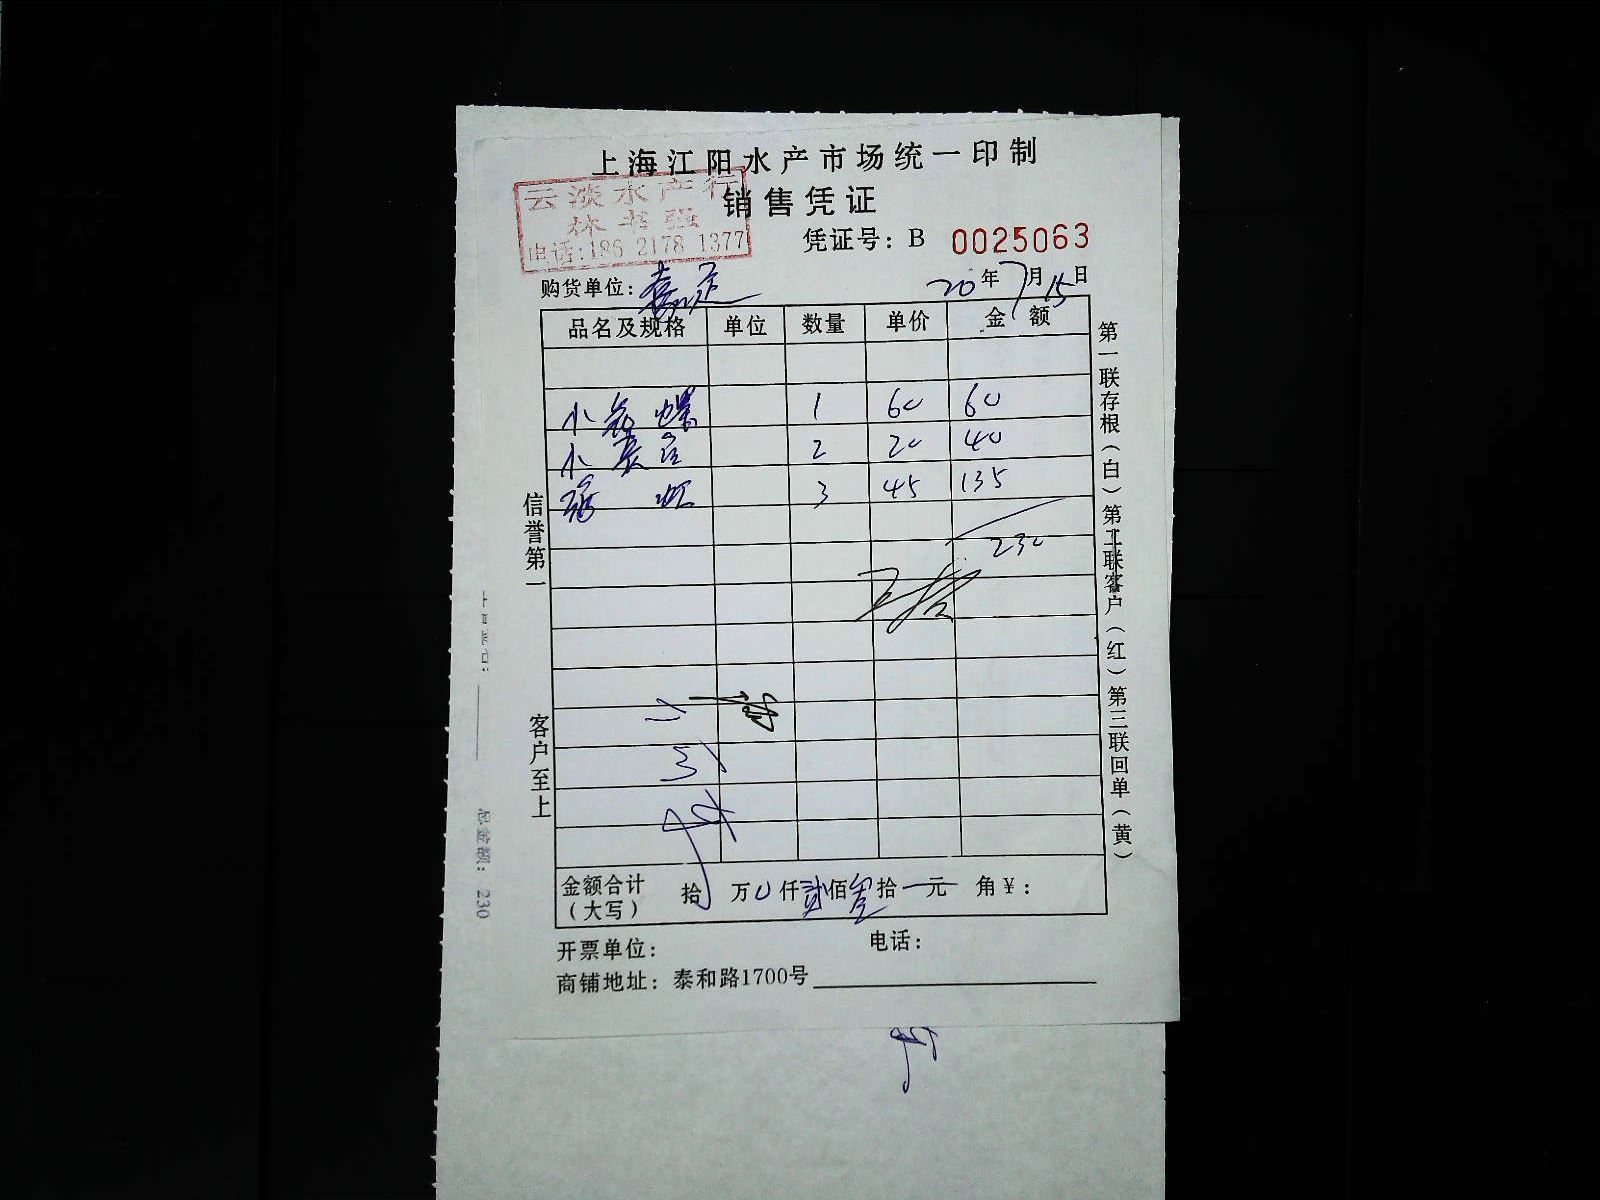 上海江阳水产市场统一印制
销售凭证
云淡水产行
林书强
电话:186 2178 1377
凭证号: B 0025063
购货单位:
20年7月15日
品名及规格 单位 数量 单价 金额
小 螺 1 60 60
小 2 20 40
虾 3 45 135
230
信誉第一
客户至上
第一联存根(白)第二联客户(红)第三联回单(黄)
金额合计(大写) 拾 万 0 仟 贰 佰 叁 拾 元 角 ¥:
开票单位: 电话:
商铺地址: 泰和路1700号
总金额: 230